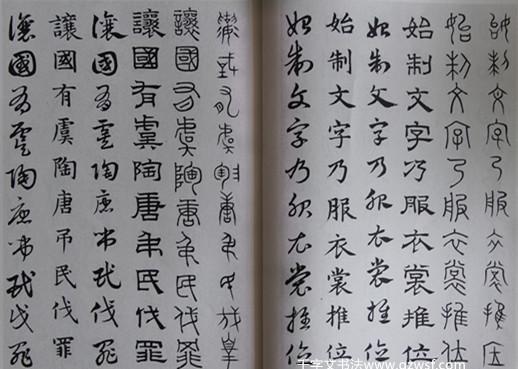 始制文字乃服衣裳推位
始制文字乃服衣裳推位
始制文字乃服衣裳推位
始制文字乃服衣裳推位
始制文字乃服衣裳推位
始制文字乃服衣裳推位
讓國有虞陶唐弔民伐罪
讓國有虞陶唐弔民伐罪
讓國有虞陶唐弔民伐罪
讓國有虞陶唐弔民伐罪
讓國有虞陶唐吊民伐罪
讓國有虞陶唐弔民伐罪
千字文书法www.qzwsf.com